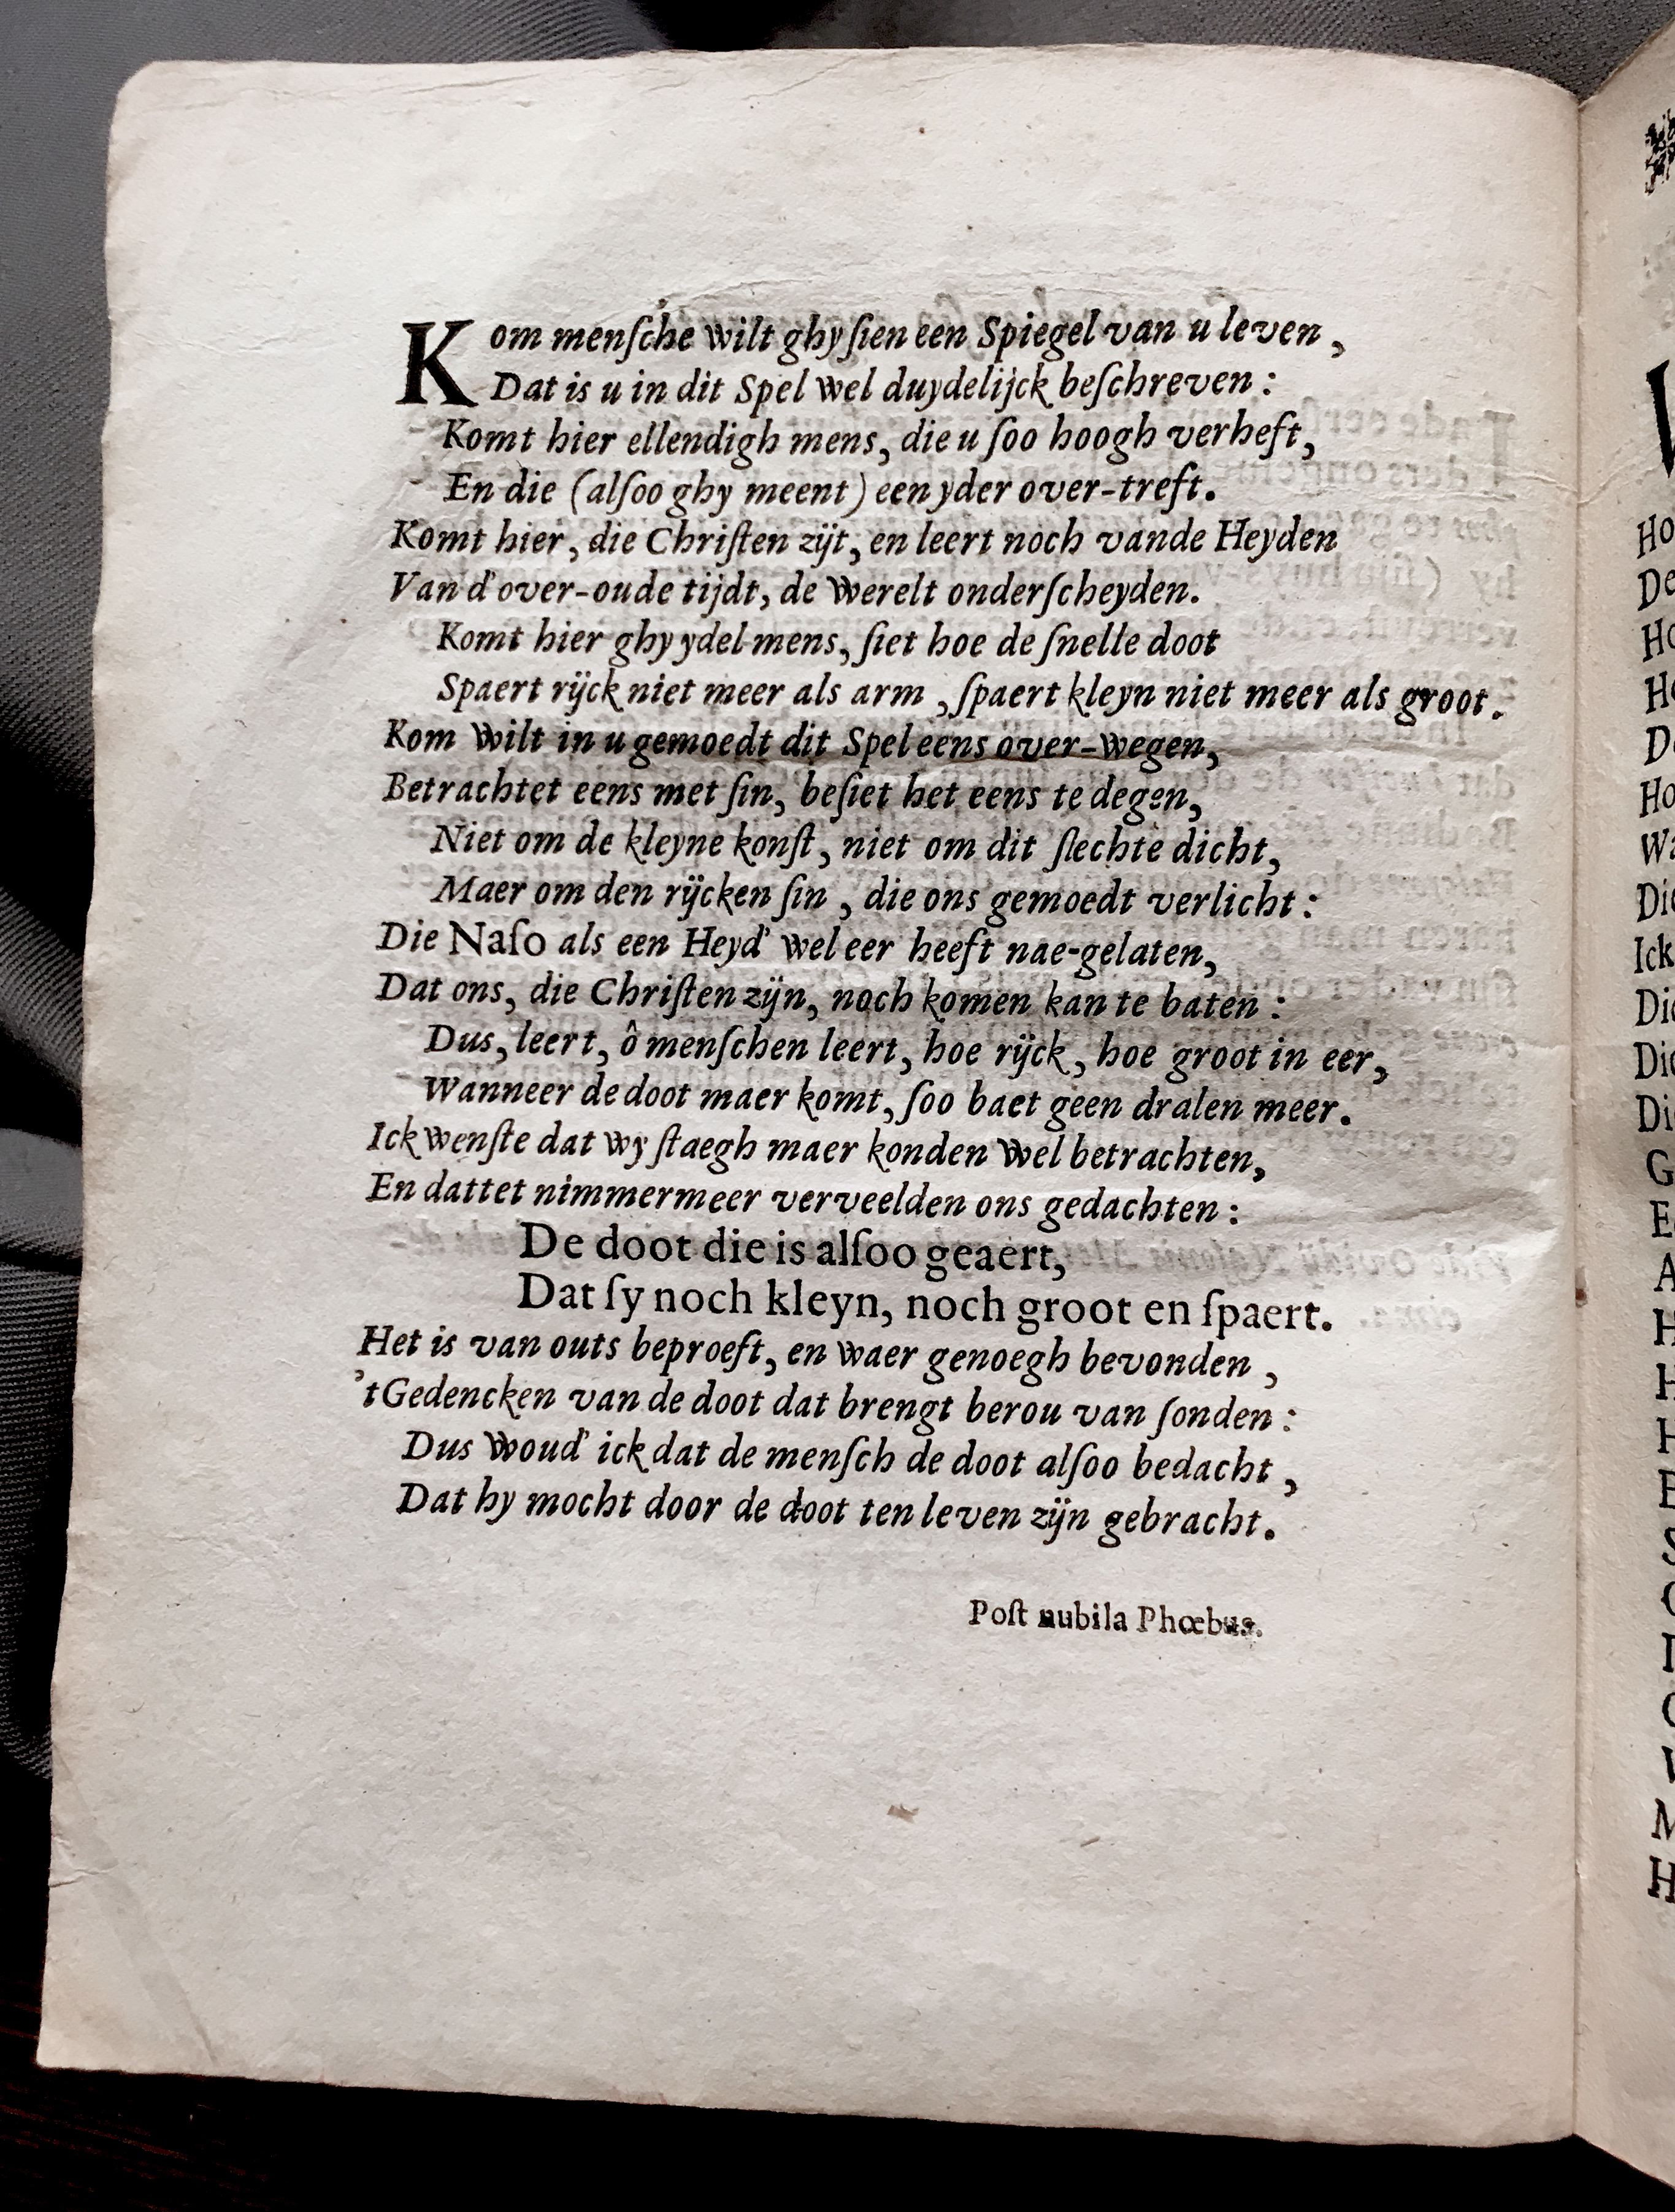 Kom menſche wilt ghy ſien een Spiegel van u leven,
Dat is u in dit Spel wel duydelijck beſchreven:
Komt hier ellendigh mens, die u ſoo hoogh verheft,
En die (alſoo ghy meent) een yder over-treft.
Komt hier, die Chriſten zijt, en leert noch vande Heyden
Van d'over-oude tijdt, de werelt onderſcheyden.
Komt hier ghy ydel mens, ſiet hoe de ſnelle doot
Spaert rijck niet meer als arm, ſpaert kleyn niet meer als groot.
Kom wilt in u gemoedt dit Spel eens over-wegen,
Betrachtet eens met ſin, beſiet het eens te degen,
Niet om de kleyne konſt, niet om dit ſlechte dicht,
Maer om den rijcken ſin, die ons gemoedt verlicht:
Die Naſo als een Heyd' wel eer heeft nae-gelaten,
Dat ons, die Chriſten zijn, noch komen kan te baten:
Dus, leert, ô menſchen leert, hoe rijck, hoe groot in eer,
Wanneer de doot maer komt, ſoo baet geen dralen meer.
Ick wenſte dat wy ſtaegh maer konden wel betrachten,
En dattet nimmermeer verveelden ons gedachten:
De doot die is alſoo geaert,
Dat ſy noch kleyn, noch groot en ſpaert.
Het is van outs beproeft, en waer genoegh bevonden,
'tGedencken van de doot dat brengt berou van ſonden:
Dus woud' ick dat de menſch de doot alſoo bedacht,
Dat hy mocht door de doot ten leven zijn gebracht.
Poſt nubila Phœbus.
Ho
De
Ho
Ho
De
Ho
Wa
Die
Ick
Die
Die
Die
G
E
A
H
H
H
E
S
M
H